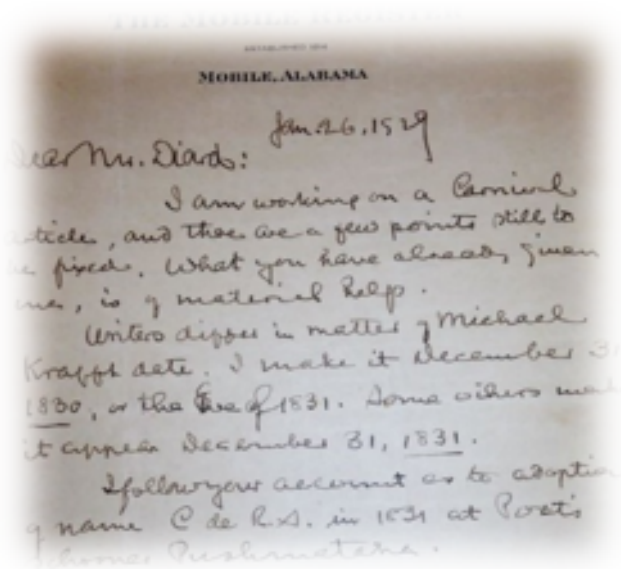 THE MOBILE REGISTER
MOBILE, ALABAMA
Jan. 26, 1929
Dear Mr. Diard:
I am working on a Carnival
article, and there are a few points still to
be fixed. What you have already given
me, is of material help.
Writers differ in matter of Michael
Krafft date. I make it December 31
1830, or the Eve of 1831. Some others make
it appear December 31, 1831.
I follow your account as to adoption
of name C de R.S. in 1831 at
Pushmataha.